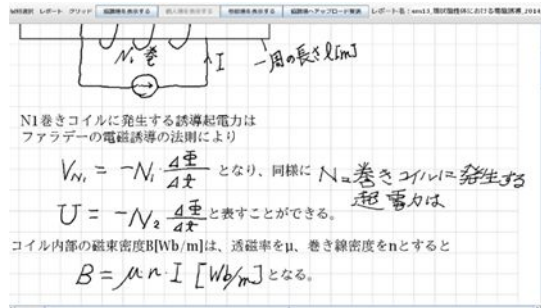 レポート グリッド
レポート名：
N₁巻
I
一周の長さℓ[m]
N1巻きコイルに発生する誘導起電力は
ファラデーの電磁誘導の法則により
V_N₁ = -N₁ ΔΦ/Δt となり、同様に N₂巻きコイルに発生する
起電力は
U = -N₂ ΔΦ/Δt と表すことができる。
コイル内部の磁束密度B[Wb/m]は、透磁率をμ、巻き線密度をnとすると
B = μ・n・I [Wb/m] となる。